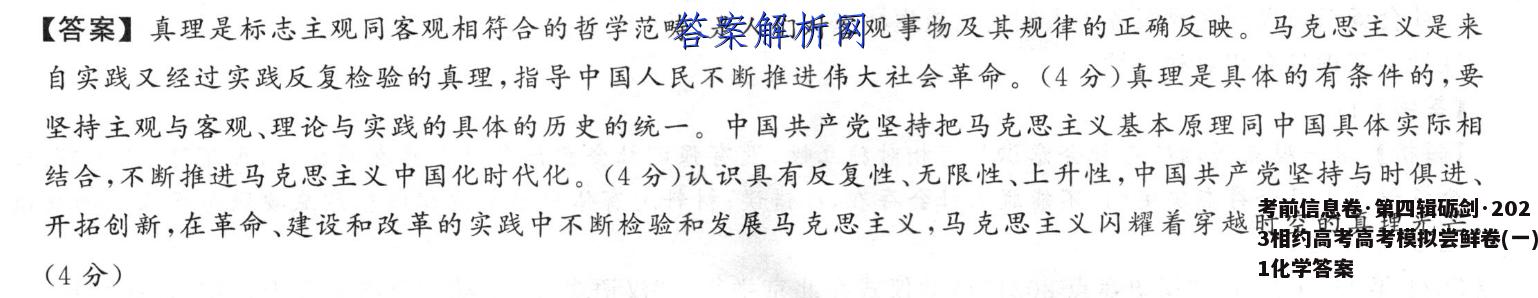 【答案】真理是标志主观同客观相符合的哲学范畴,是人们对客观事物及其规律的正确反映。马克思主义是来
答案解析网
自实践又经过实践反复检验的真理,指导中国人民不断推进伟大社会革命。(4 分)真理是具体的有条件的,要
坚持主观与客观、理论与实践的具体的历史的统一。中国共产党坚持把马克思主义基本原理同中国具体实际相
结合,不断推进马克思主义中国化时代化。(4 分)认识具有反复性、无限性、上升性,中国共产党坚持与时俱进、
开拓创新,在革命、建设和改革的实践中不断检验和发展马克思主义,马克思主义闪耀着穿越时空的真理光芒。
(4 分)
考前信息卷·第四辑砺剑·202
3相约高考高考模拟尝鲜卷(一)
1化学答案